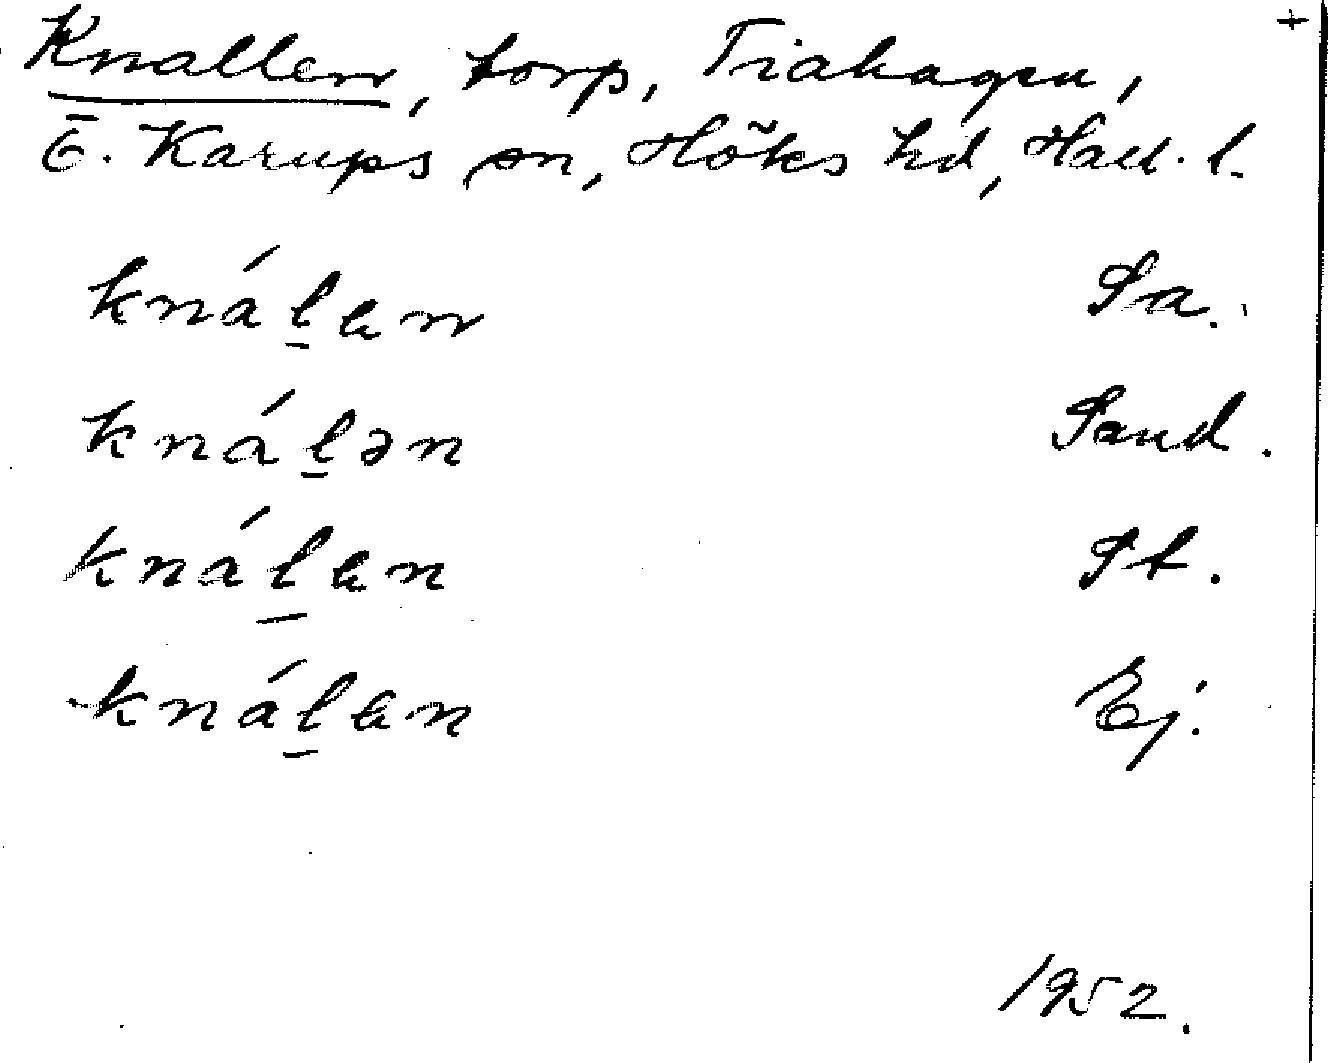 +
Knallen, torp, Tiahagen,
Ö. Karups sn, Höks hd, Hall. l.
knáḻen Sa.
knáḻən Sand.
knáḻen St.
knáḻen Ej.
1952.